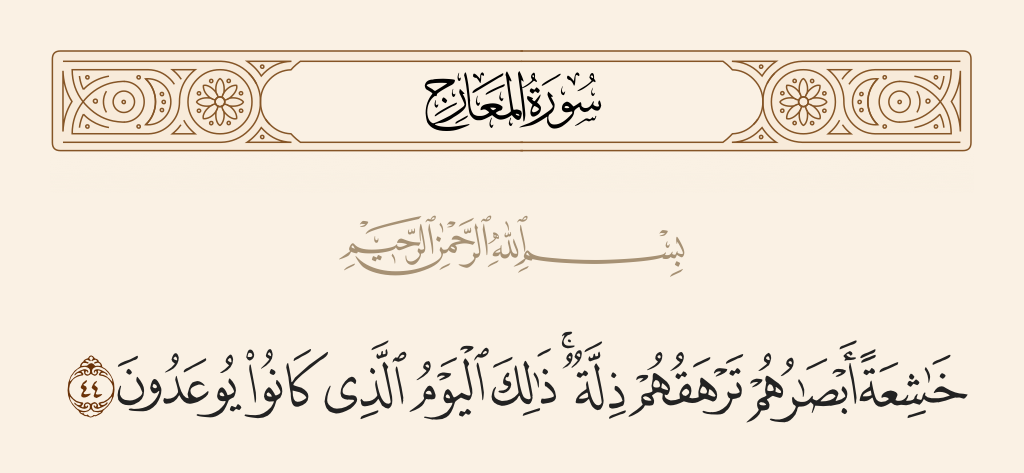 سُورَةُ المَعَارِجِ
بِسْمِ ٱللَّهِ ٱلرَّحْمَٰنِ ٱلرَّحِيمِ
خَٰشِعَةً أَبْصَٰرُهُمْ تَرْهَقُهُمْ ذِلَّةٌۭ ۚ ذَٰلِكَ ٱلْيَوْمُ ٱلَّذِى كَانُوا۟ يُوعَدُونَ ٤٤